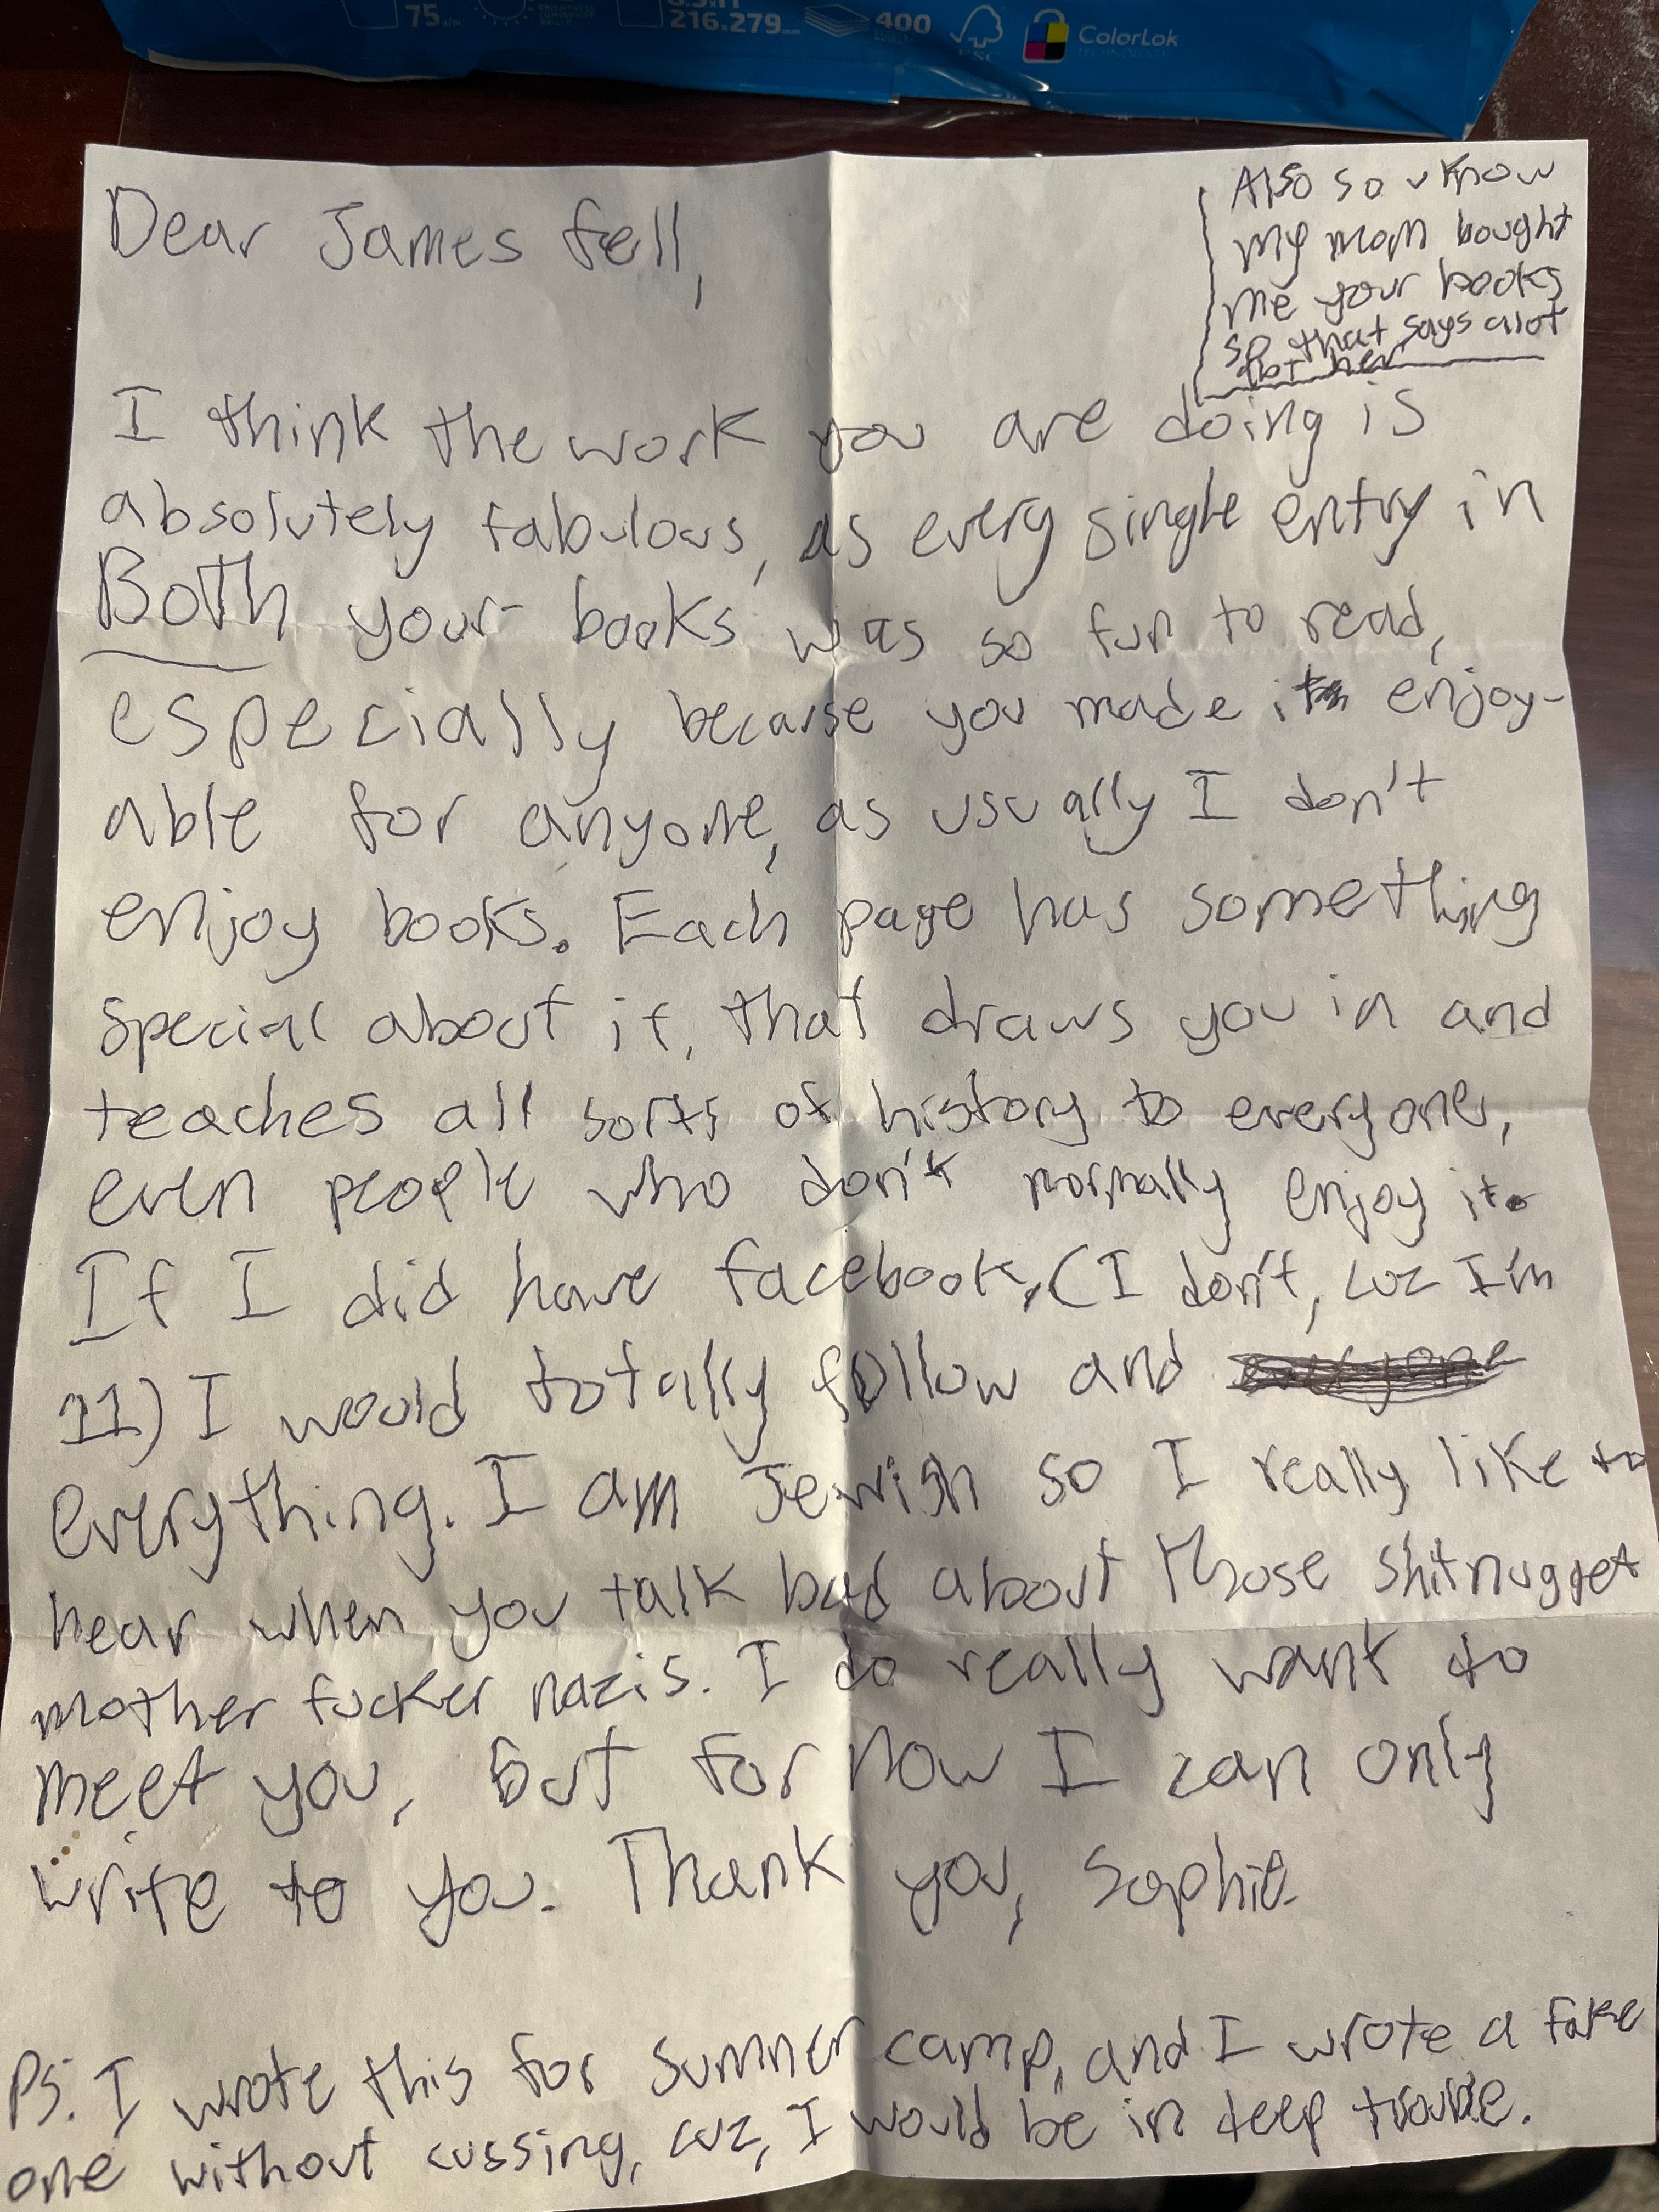 75
216x279mm
400
ColorLok
Dear James fell,
Also so u know
my mom bought
me your books
so that says alot
abt her
I think the work you are doing is
absolutely fabulous, as every single entry in
Both your books was so fun to read,
especially because you made it enjoy-
able for anyone, as usually I don't
enjoy books. Each page has something
special about it, that draws you in and
teaches all sorts of history to everyone,
even people who don't normally enjoy it.
If I did have facebook, (I don't, cuz I'm
11) I would totally follow and
everything. I am Jewish so I really like to
hear when you talk bad about those shitnugget
mother fucker nazis. I do really want to
meet you, but for now I can only
write to you. Thank you, Sophie.
PS. I wrote this for summer camp, and I wrote a fake
one without cussing, cuz, I would be in deep trouble.